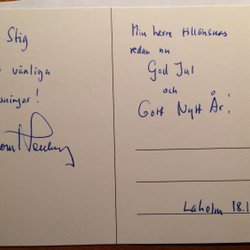 Stig
vänliga
ningar!
Min herre tillönskas
redan nu
God Jul
och
Gott Nytt År!
Laholm 18.1